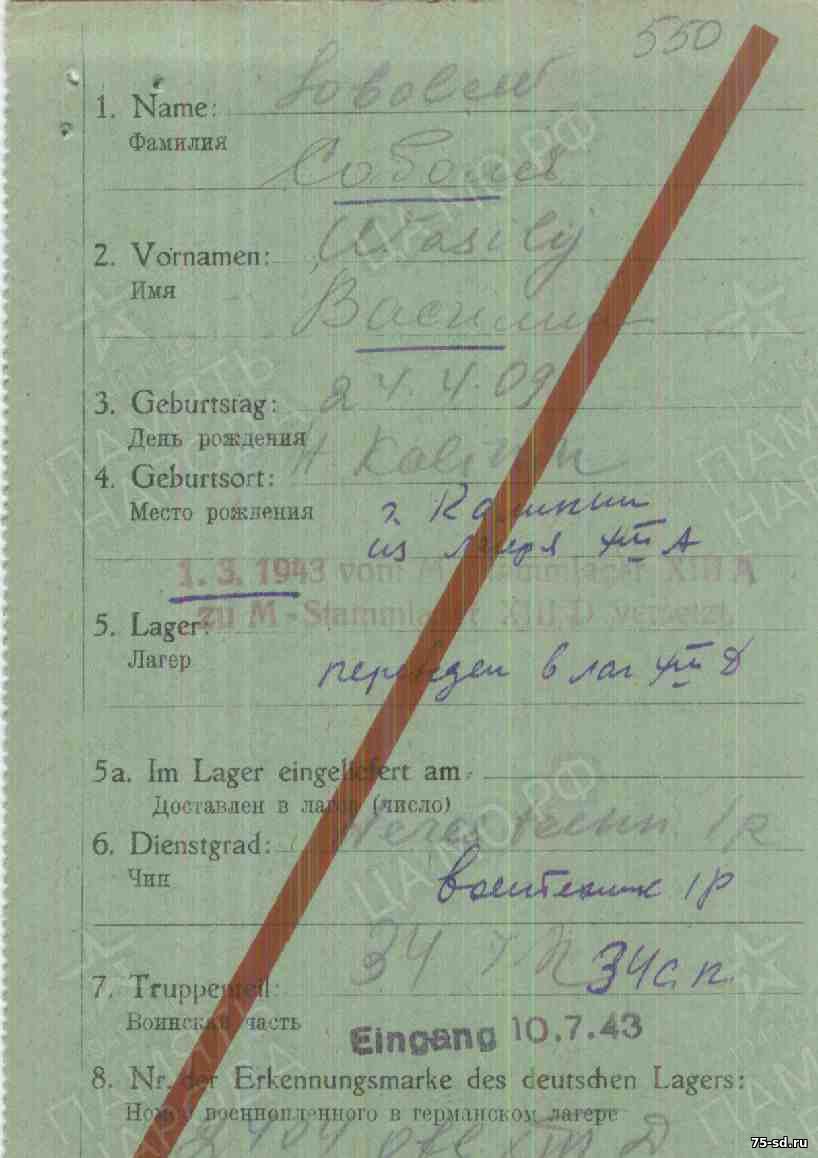 550
1. Name:
Фамилия
Соболев
2. Vornamen: Wasilij
Имя
Василий
3. Geburtstag: 24.4.09
День рождения
4. Geburtsort: Kalinin
Место рождения г. Калинин
из лагеря XIII А
1. 3. 1943 vom M-Stammlager XIII A
5. Lager: zu M-Stammlager XIII D versetzt.
Лагер переведен в лаг XIII Д
5a. Im Lager eingeliefert am:
Доставлен в лагер (число)
6. Dienstgrad: techn. 1 р
Чин воентехник 1 р
7. Truppenteil: 34 34 с п
Воинская часть
Eingang 10.7.43
8. Nr. der Erkennungsmarke des deutschen Lagers:
Номер военнопленного в германском лагере
XIII D
ЦАМО.РФ
ПАМЯТЬ НАРОДА
75-sd.ru